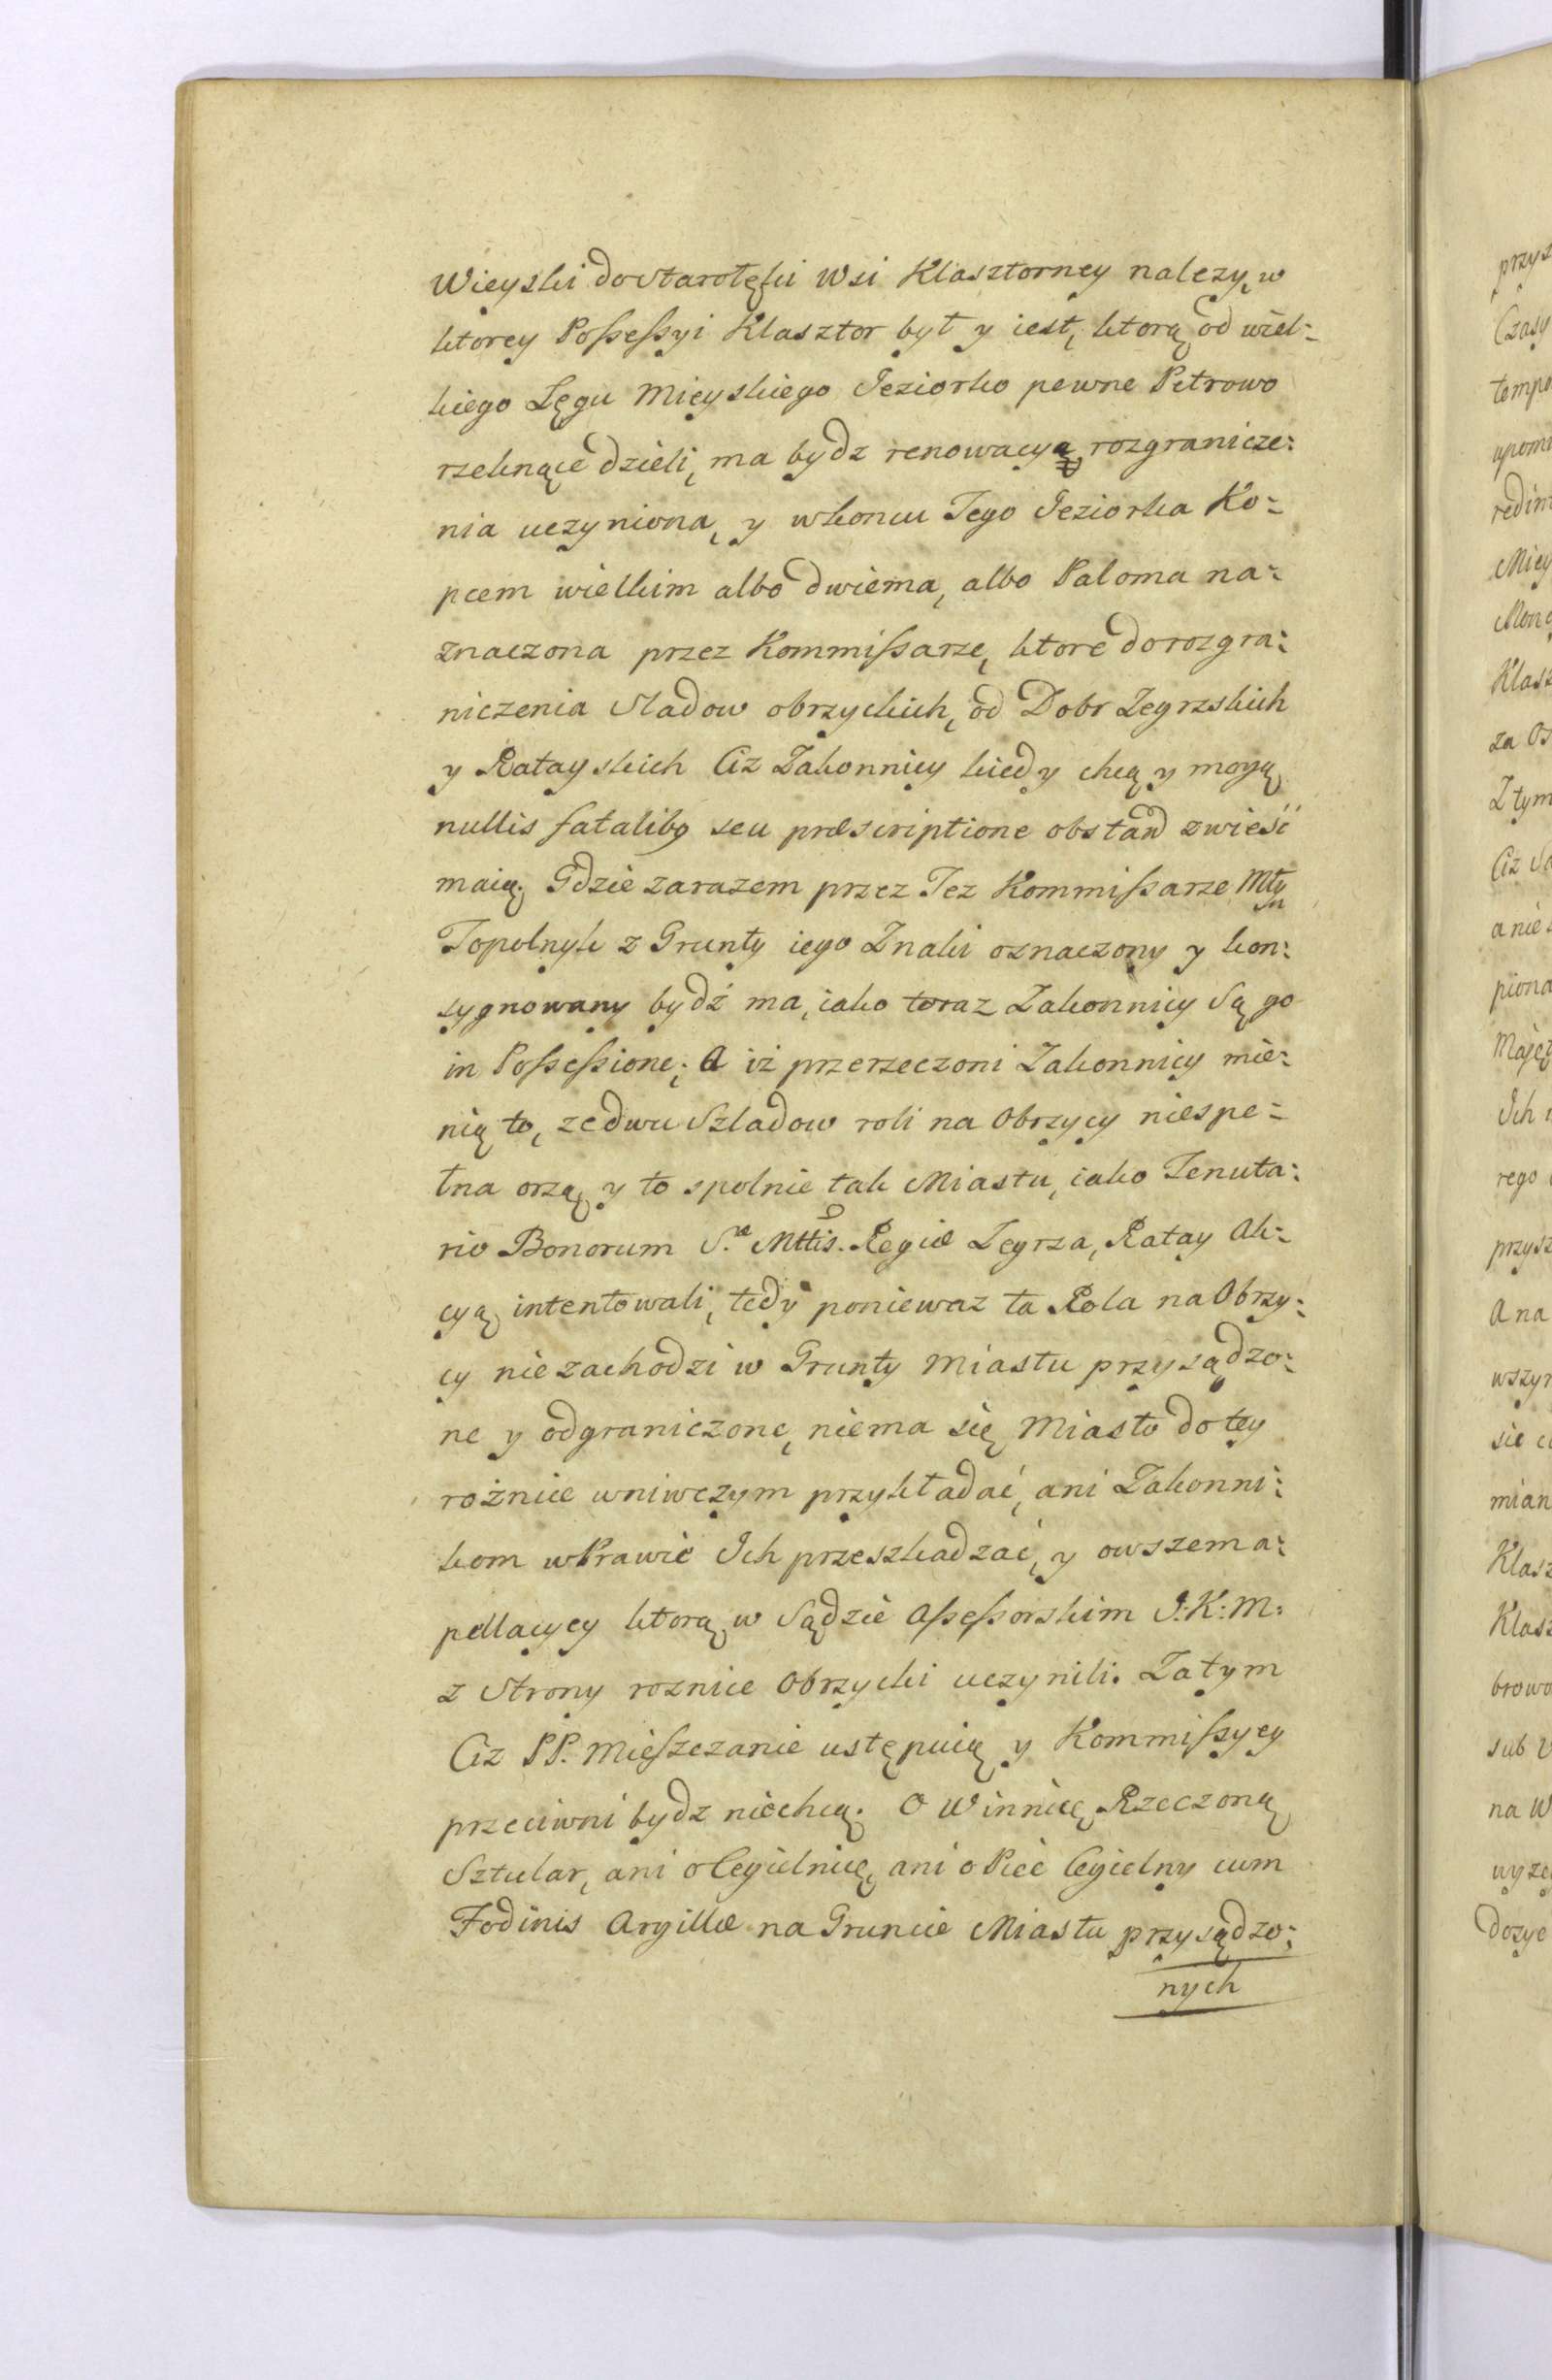 Wieyski do Starołęki Wsi Klasztorney nalezy, w
ktorey Possessyi Klasztor był y iest, ktorą od wiel-
kiego Lęgu Mieyskiego Jeziorko pewne Petrowo
rzeknące dzieli, ma bydz renowacya rozgranicze:
nia uczyniona, y wkoncu Tego Jeziorka Ko-
pcem wielkim albo dwiema, albo Paloma na-
znaczona przez Kommissarze, ktore do rozgra:
niczenia Sladow obrzyckich, od Dobr Zegrzskich
y Ratayskich Ciz Zakonnicy kiedy chcą y mogą
nullis fatalibg seu præscriptione obstan zwieść
maią. Gdzie zarazem przez Tez Kommissarze Młyn
Topolnyk z Grunty iego Znaki oznaczony y kon:
sygnowany bydź ma, iako toraz Zakonnicy Są go
in Possessione; A iż przerzeczoni Zakonnicy mie:
nią to, ze dwu Szladow roli na Obrzycy niespe-
łna orzą, y to spolnie tak Miastu, iako Tenuta:
rio Bonorum S.æ Mttis. Regiæ Zegrza, Ratay Ak-
cyą intentowali, tedy poniewaz ta Rola na Obrzy:
cy nie zachodzi w Grunty Miastu przysądzo:
ne y odgraniczone, niema się Miasto do tey
rożnice wniwczym przykładać, ani Zakonni:
kom w Prawie Ich przeszkadzać, y owszem a:
pellacycy ktorą w Sądzie Assessorskim J:K:M:
z Strony roznice Obrzycki uczynili. Zatym
Ciz PP. Mieszczanie ustępuią y Kommissycy
przeciwni bydz niechcą. O Winnicę Rzeczoną
Sztular, ani o Cegielnicę, ani o Piec Cegielny cum
Fodinis Argillæ na Gruncie Miastu przysądzo:
nych
przys
Czasy
Miey
Klasz
za Os
Z tym
Ich
rego
A na
mian
Klasz
sub
na W